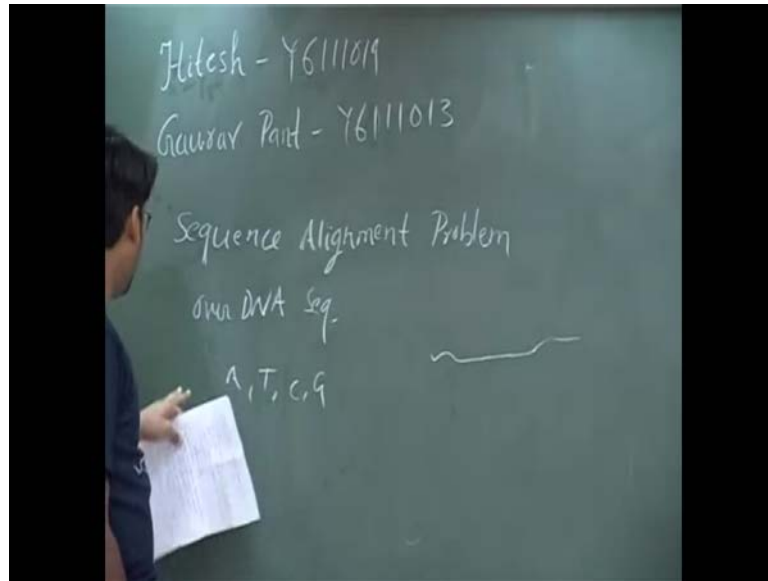 Hitesh - Y6111019
Gaurav Pant - Y6111013
Sequence Alignment Problem
over DNA Seq.
A, T, C, G